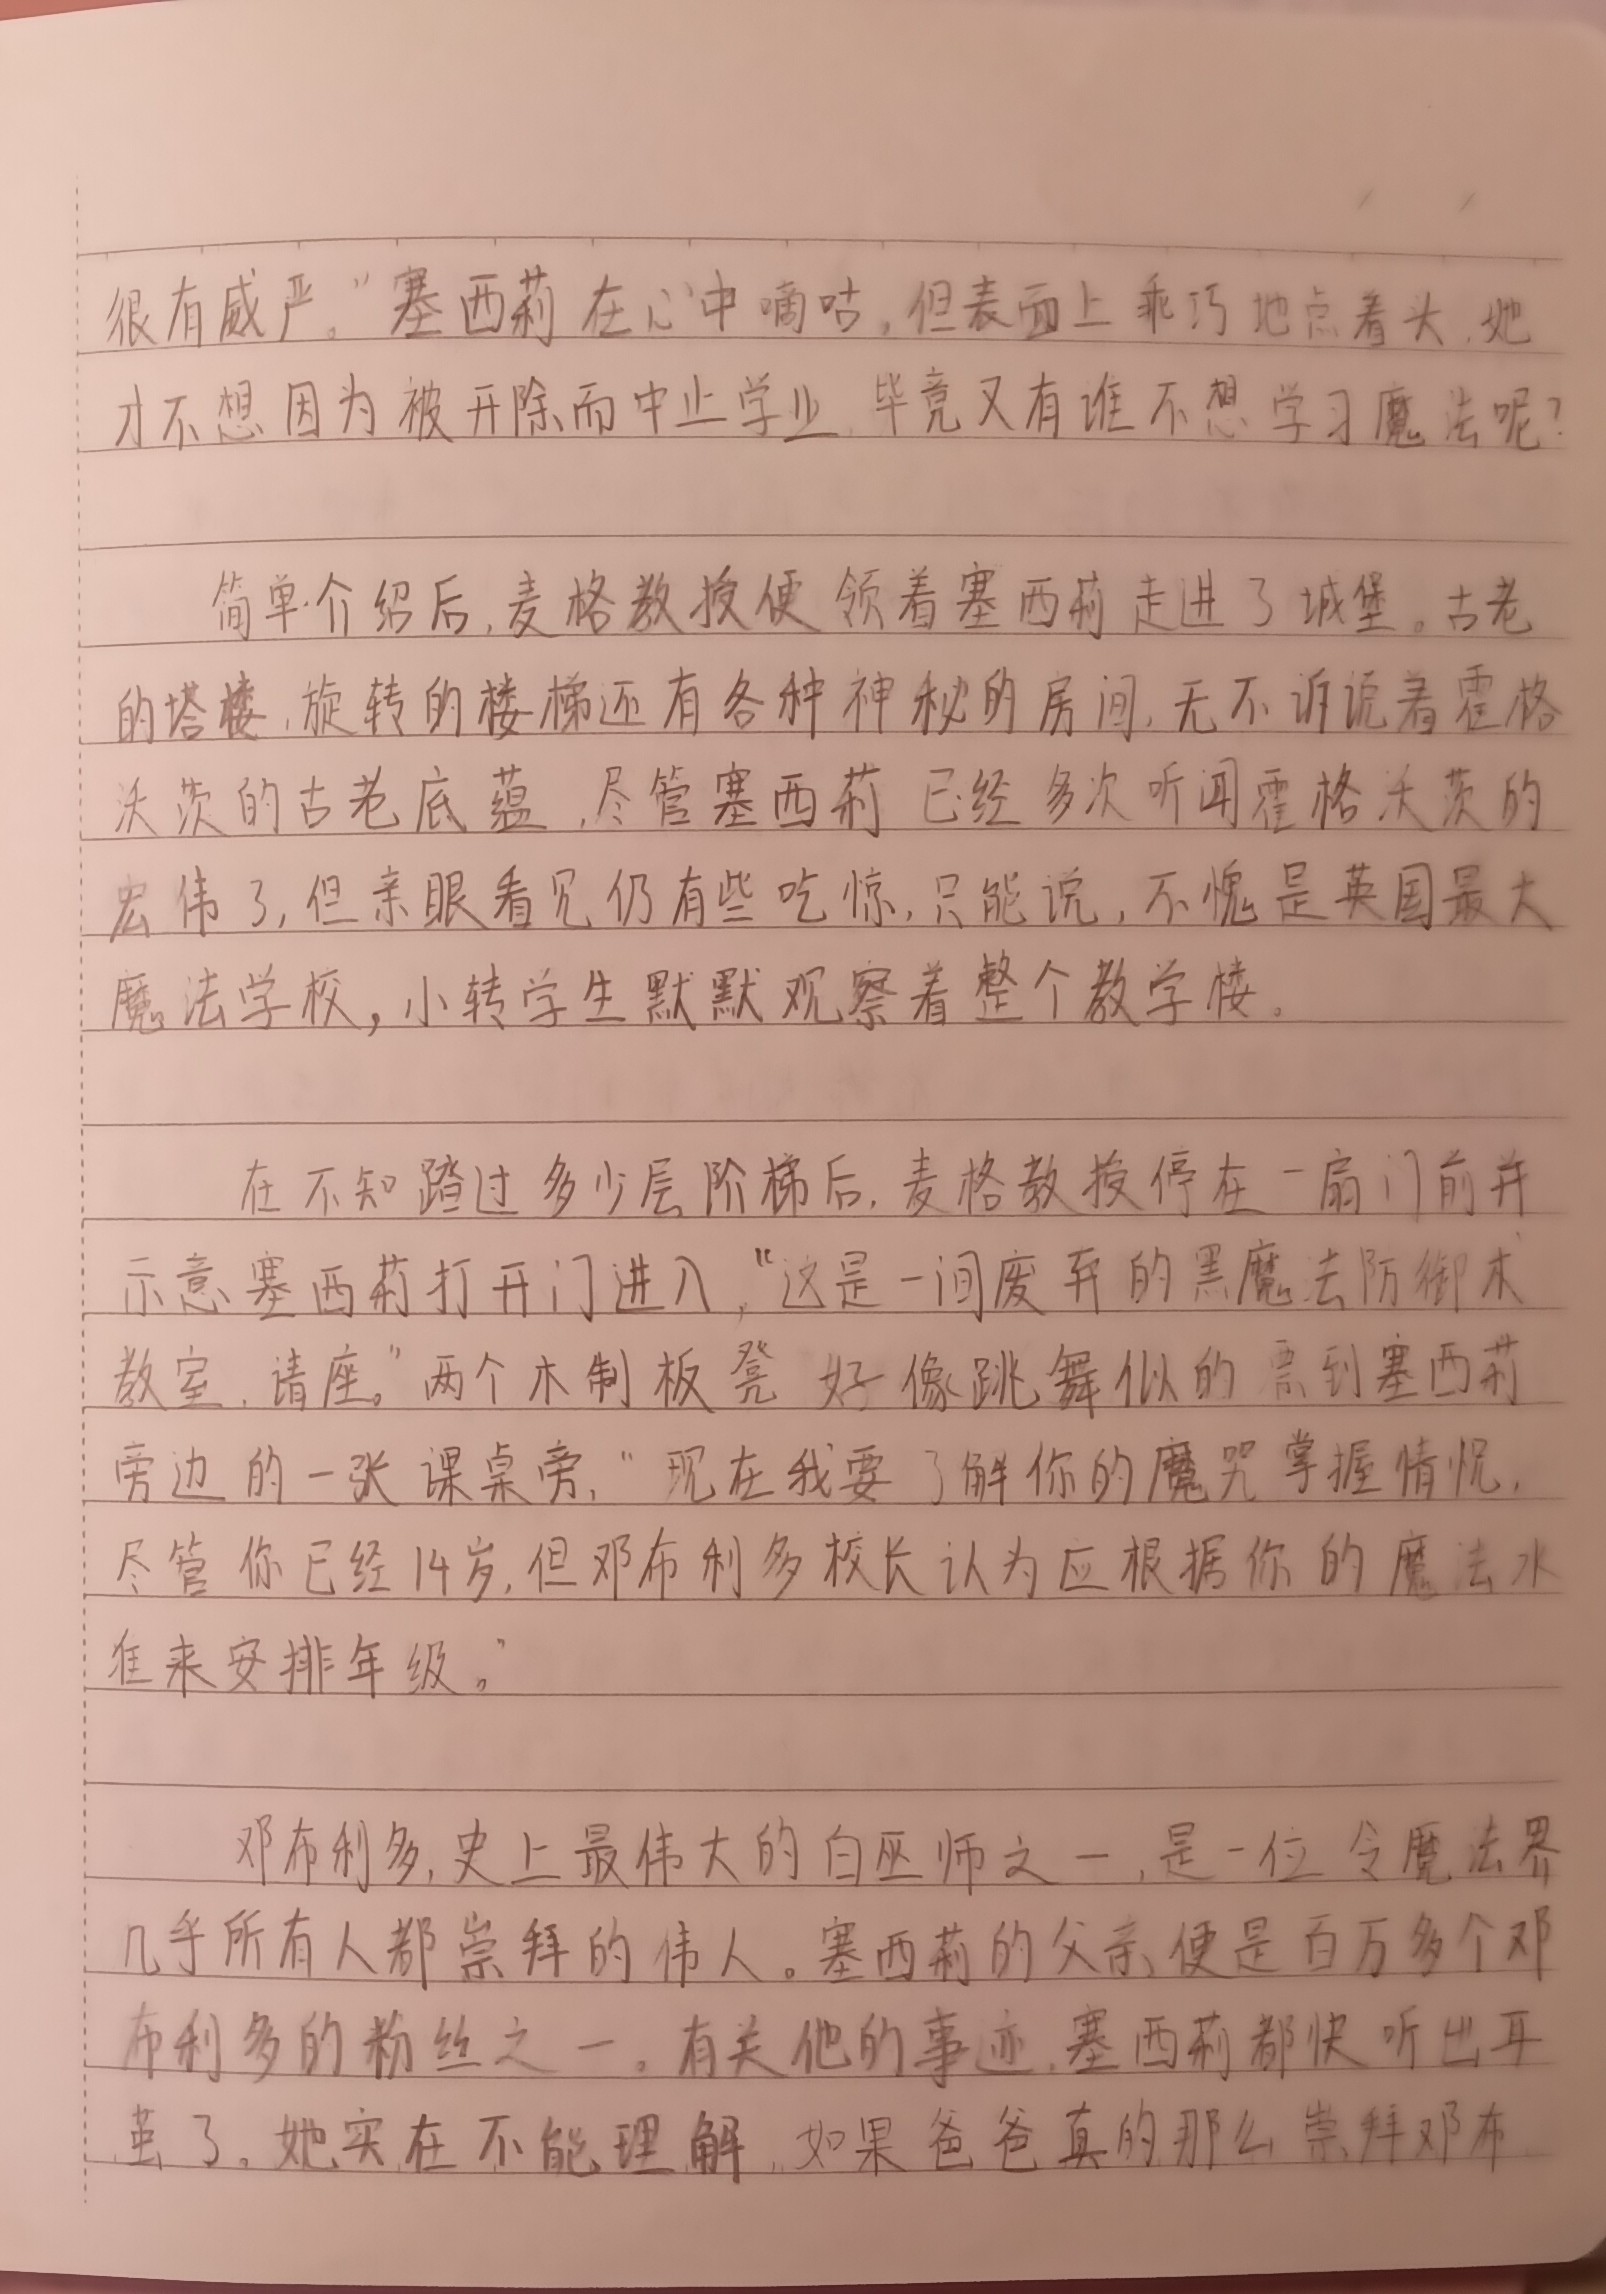 很有威严。”塞西莉在心中嘀咕,但表面上乖巧地点着头,她
才不想因为被开除而中止学业,毕竟又有谁不想学习魔法呢?
简单介绍后,麦格教授便领着塞西莉走进了城堡。古老
的塔楼,旋转的楼梯还有各种神秘的房间,无不诉说着霍格
沃茨的古老底蕴,尽管塞西莉已经多次听闻霍格沃茨的
宏伟了,但亲眼看见仍有些吃惊,只能说,不愧是英国最大
魔法学校,小转学生默默观察着整个教学楼。
在不知踏过多少层阶梯后,麦格教授停在一扇门前并
示意塞西莉打开门进入,“这是一间废弃的黑魔法防御术
教室,请座。”两个木制板凳好像跳舞似的票到塞西莉
旁边的一张课桌旁,“现在我要了解你的魔咒掌握情况,
尽管你已经14岁,但邓布利多校长认为应根据你的魔法水
准来安排年级。”
邓布利多,史上最伟大的白巫师之一,是一位令魔法界
几乎所有人都崇拜的伟人。塞西莉的父亲便是百万多个邓
布利多的粉丝之一。有关他的事迹,塞西莉都快听出耳
茧了。她实在不能理解,如果爸爸真的那么崇拜邓布